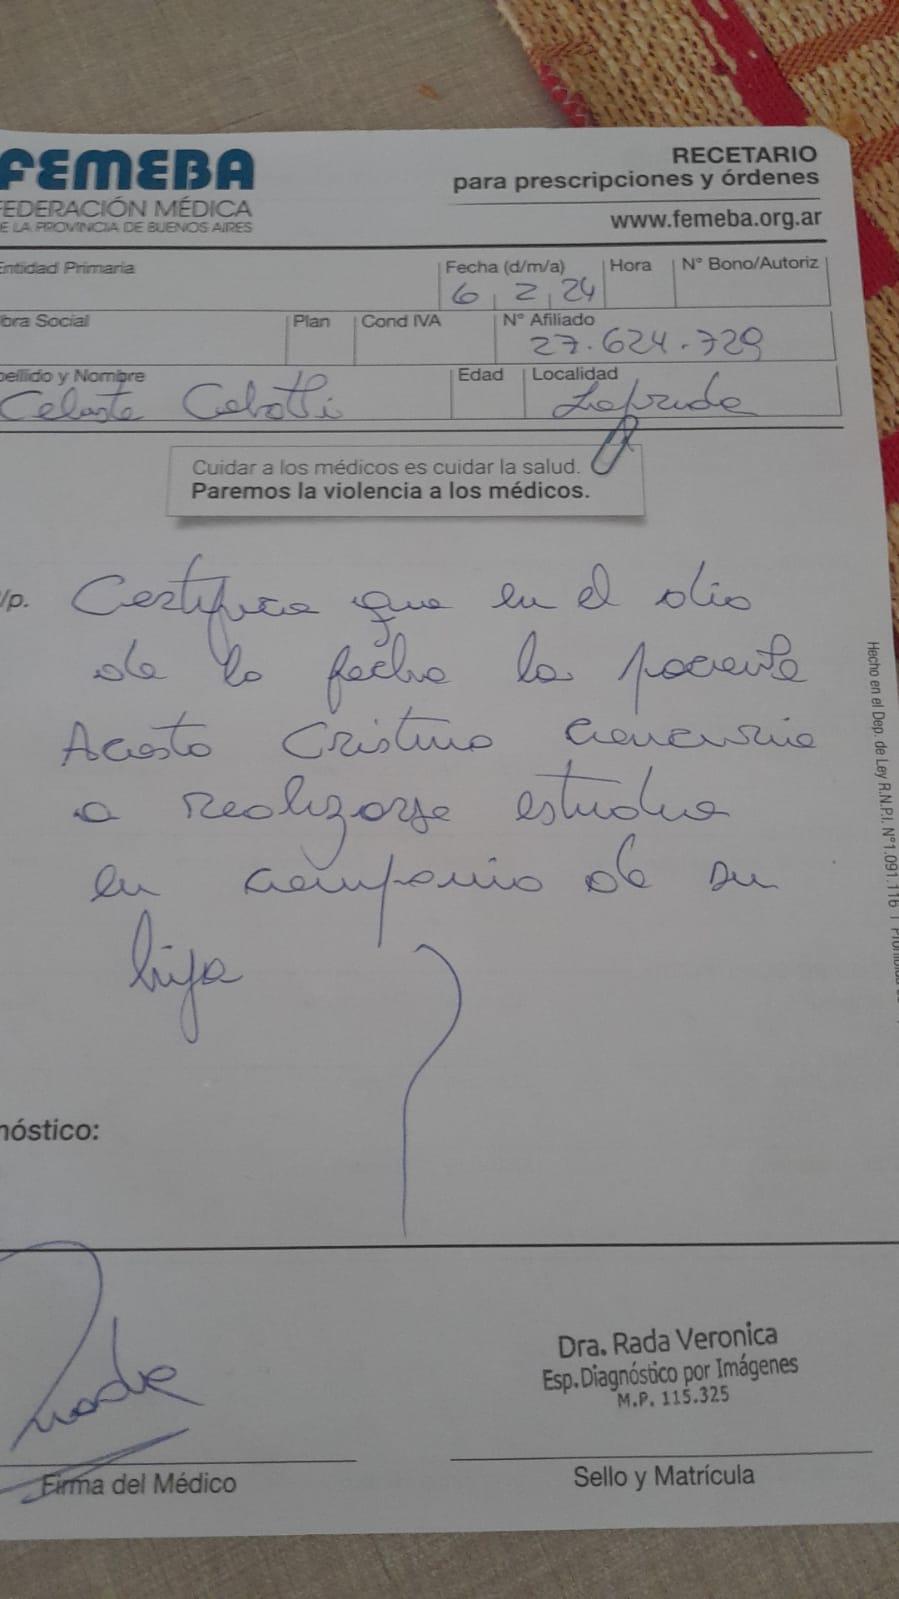 FEMEBA
FEDERACIÓN MÉDICA
E LA PROVINCIA DE BUENOS AIRES
RECETARIO
para prescripciones y órdenes
www.femeba.org.ar
Entidad Primaria
Fecha (d/m/a) Hora N° Bono/Autoriz
6, 2, 24
bra Social Plan Cond IVA N° Afiliado
27.624.729
pellido y Nombre Edad Localidad
Celeste Laprida
Cuidar a los médicos es cuidar la salud.
Paremos la violencia a los médicos.
/p. Certifico que en el día
de la fecha la paciente
Acosta Cristina concurrió
a realizarse estudio
en compañía de su
hija
nóstico:
Hecho en el Dep. de Ley R.N.P.I. N°1.091.116
Dra. Rada Veronica
Esp. Diagnóstico por Imágenes
M.P. 115.325
Firma del Médico
Sello y Matrícula